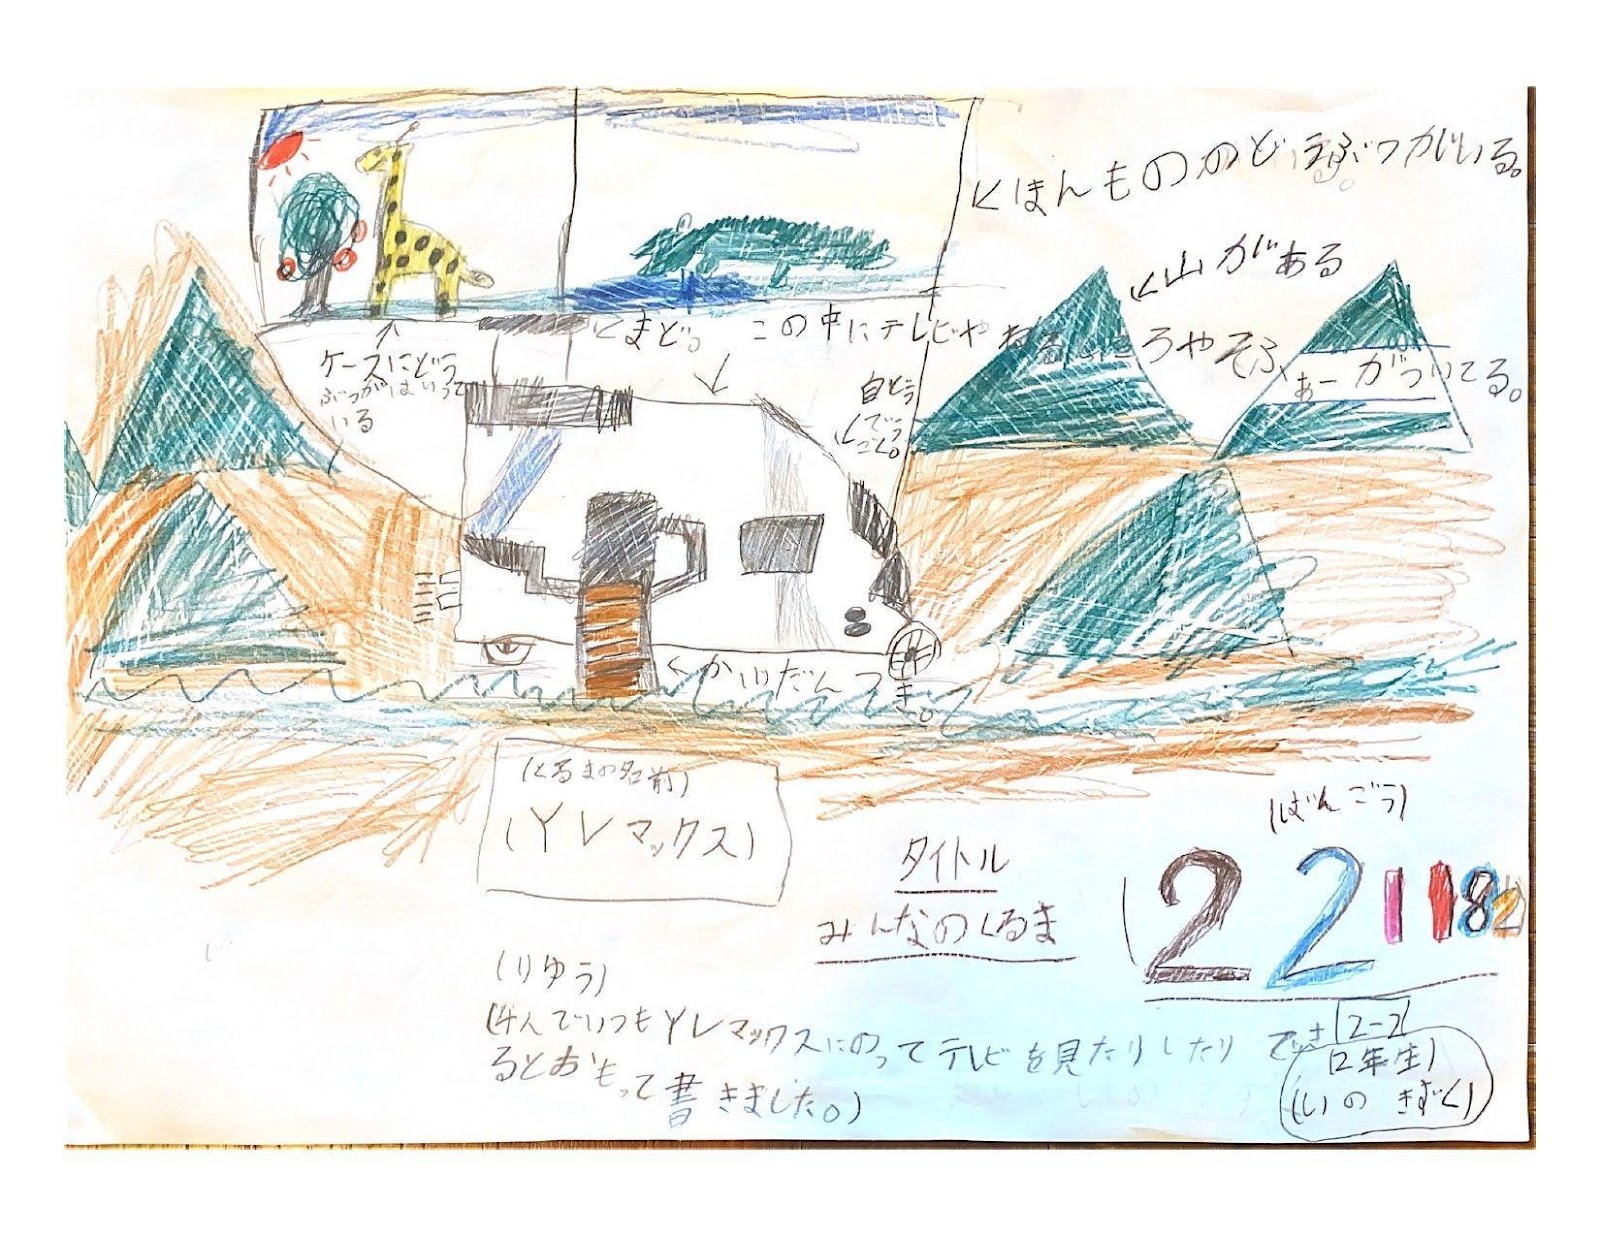 くほんもののどうぶつがいる。
く山がある
くまど。
この中にテレビや ねる ところやそふ
ぁーがついてる。
ケースにどう
ぶつがはいって
いる
自どう
でうごく。
くかいだんつ
き。
(くるまの名前)
(YLマックス)
(ばんごう)
タイトル
みんなのくるま
221182
(りゆう)
(4人でいつもYLマックスにのってテレビを見たりしたり でき
るとおもって書きました。)
2-2
(2年生)
(しの きずく)